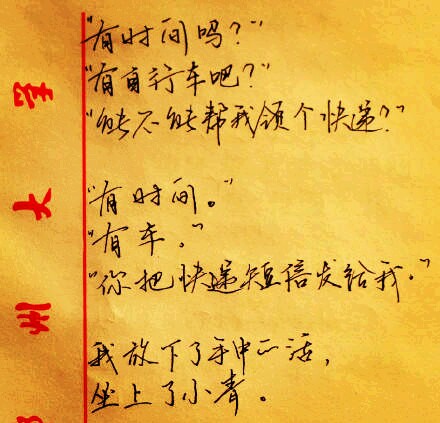 "有时间吗?"
"有自行车吧?"
"能不能帮我领个快递?"
"有时间。"
"有车。"
"你把快递短信发给我。"
我放下了手中的活，
坐上了小青。
州大学